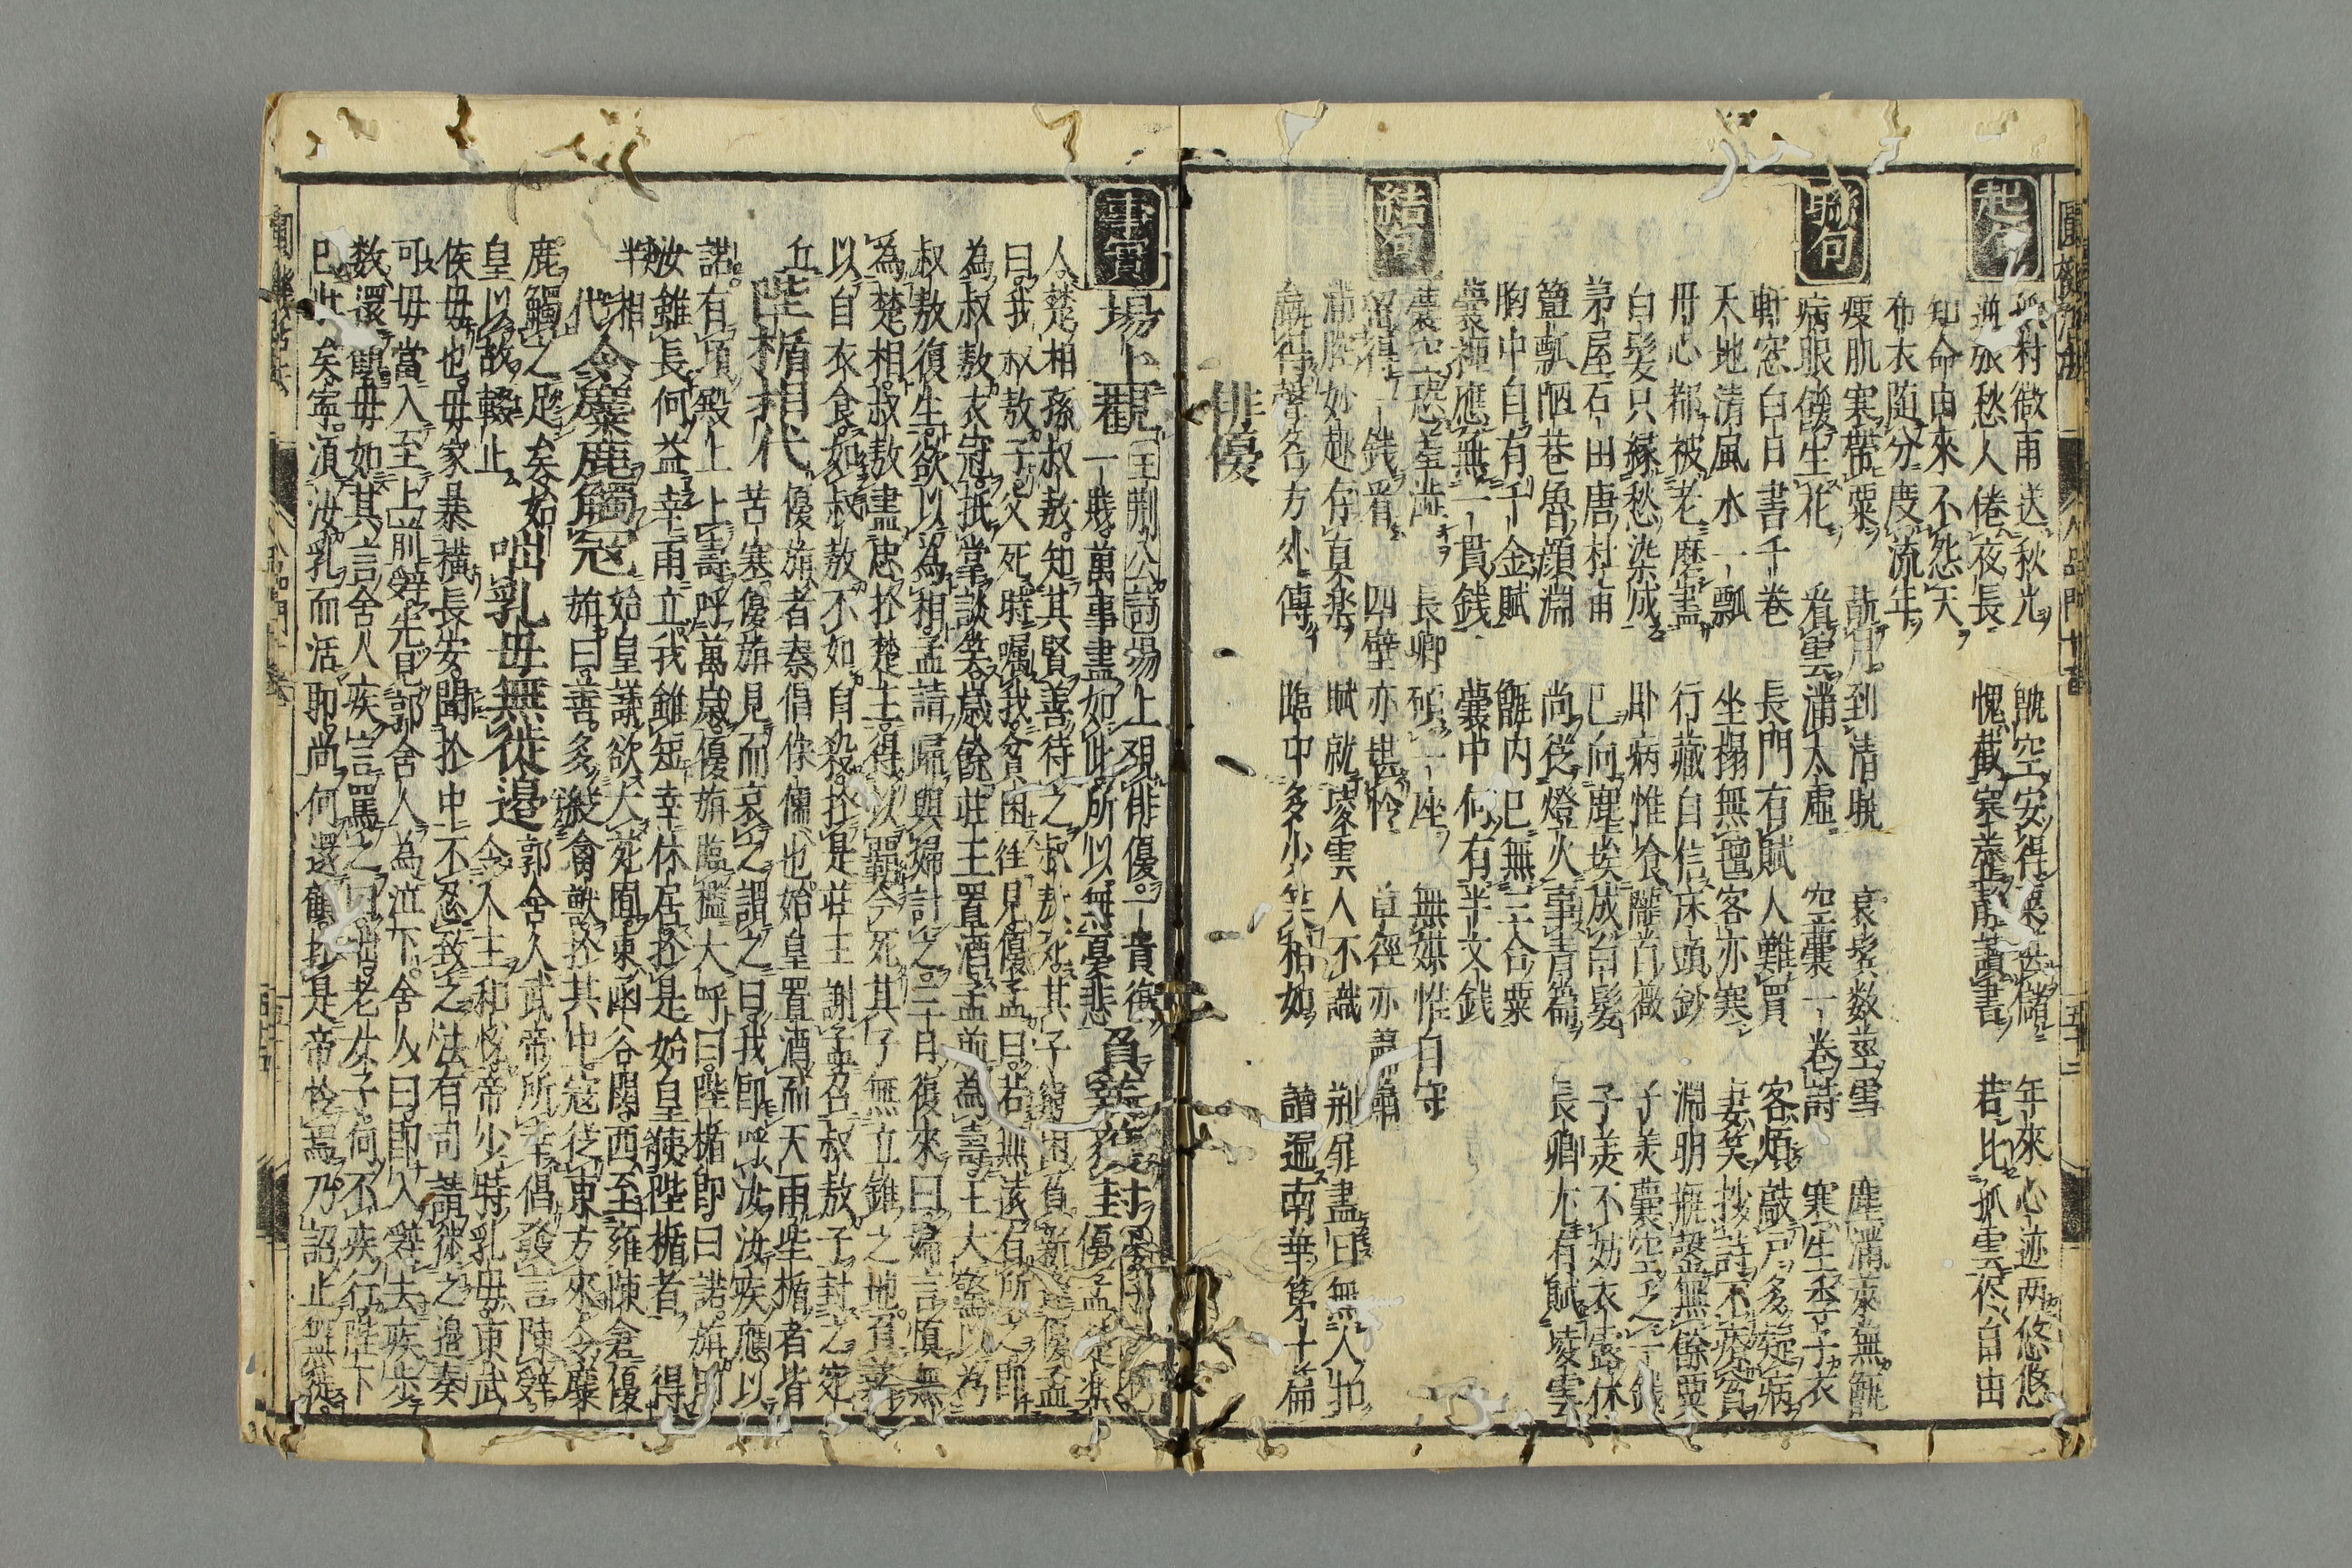 起句
孤村微雨送秋光 既空安得 儲 年來心迹两悠悠
逆旅愁人倦夜長 愧截寒 讀書 若比孤雲任自由
知命由來不怨天
布衣随分度流年
聯句
瘦肌寒帶粟 到清暁 衰鬢数莖雪 塵滿萊蕪甑
病眼倦生花 看雲滿太虛 空囊一巻詩 寒生季子衣
軒窓白日書千巻 長門有賦人難買 客煩敲戸多疑病
天地清風水一瓢 坐榻無氊客亦寒 妻笑抄詩不療貧
丹心都被老磨盡 行藏自信床頭鈔 淵明瓶罄無餘粟
白髪只縁愁染成 卧病惟飡離首薇 子美囊空乏一錢
茅屋石田唐杜甫 已向塵埃成白髪 子美不妨衣露休
簞瓢陋巷魯顔淵 尚従燈火事青篇 長卿亦有賦凌雲
胸中自有千金賦 甑内已無三合粟
囊裡應無一貫銭 囊中何有半文銭
結句
囊空恐羞澁 長卿 碩一座 無媒惟自守
留得一銭看 四壁亦堪怜 草徑亦蕭䔥
滿腔妙趣存真楽 賦就凌雲人不識 荊扉盡日無人扣
贏得聲名方外傳 臨中多少笑相如 讀遍南華第十篇
俳優
事實
場上觀 王荊公詩場上觀俳優一貴復
一賤萬事盡如此所以無憂悲 負薪 封 優孟楚楽
人楚相孫叔敖知其賢善待之叔敖死其子窮困負薪逢優孟
曰我叔敖子父死時嘱我貧困徃見優孟曰若無遠有所之即
為叔敖衣冠抵掌談笑歳餘莊王置酒孟前為壽王大驚以為
叔敖復生欲以為相孟請歸與婦計之三日復來曰婦言慎無
為楚相叔敖盡忠扵楚王得以覇今死其子無立錐之地負薪
以自衣食如叔敖不如自殺扵是莊王謝孟召叔敖子封之寝
丘 陛楯相代 優旃者秦倡侏儒也始皇置酒而天雨陛楯者皆
苦寒優旃見而哀之謂之曰我即呼汝汝疾應以
諾有頃殿上上壽呼萬歳優旃臨檻大呼曰陛楯郎曰諾旃曰
汝雖長何益幸雨立我雖短幸休居扵是始皇使陛楯者得
半相代 令麋鹿觸寇 始皇議欲大苑囿東函谷関西至雍陳倉優
旃曰善多縱禽獸扵其中寇従東方來令麋
鹿觸之足矣始
皇以故輟止 咄乳毋無徙邉 郭舍人武帝所幸倡發言陳辝
令人主和悦帝少時乳毋東武
侯毋也毋家暴横長安聞扵中不忍致之法有司請徙之邉奏
可毋當入至上前辝先見郭舍人為泣下舍人曰即入辝去疾歩
数還顧毋如其言舍人疾言罵之曰咄老女子何不疾行陛下
已壮矣寧湏汝乳而活耶尚何還顧扵是帝怜焉乃詔止無徙